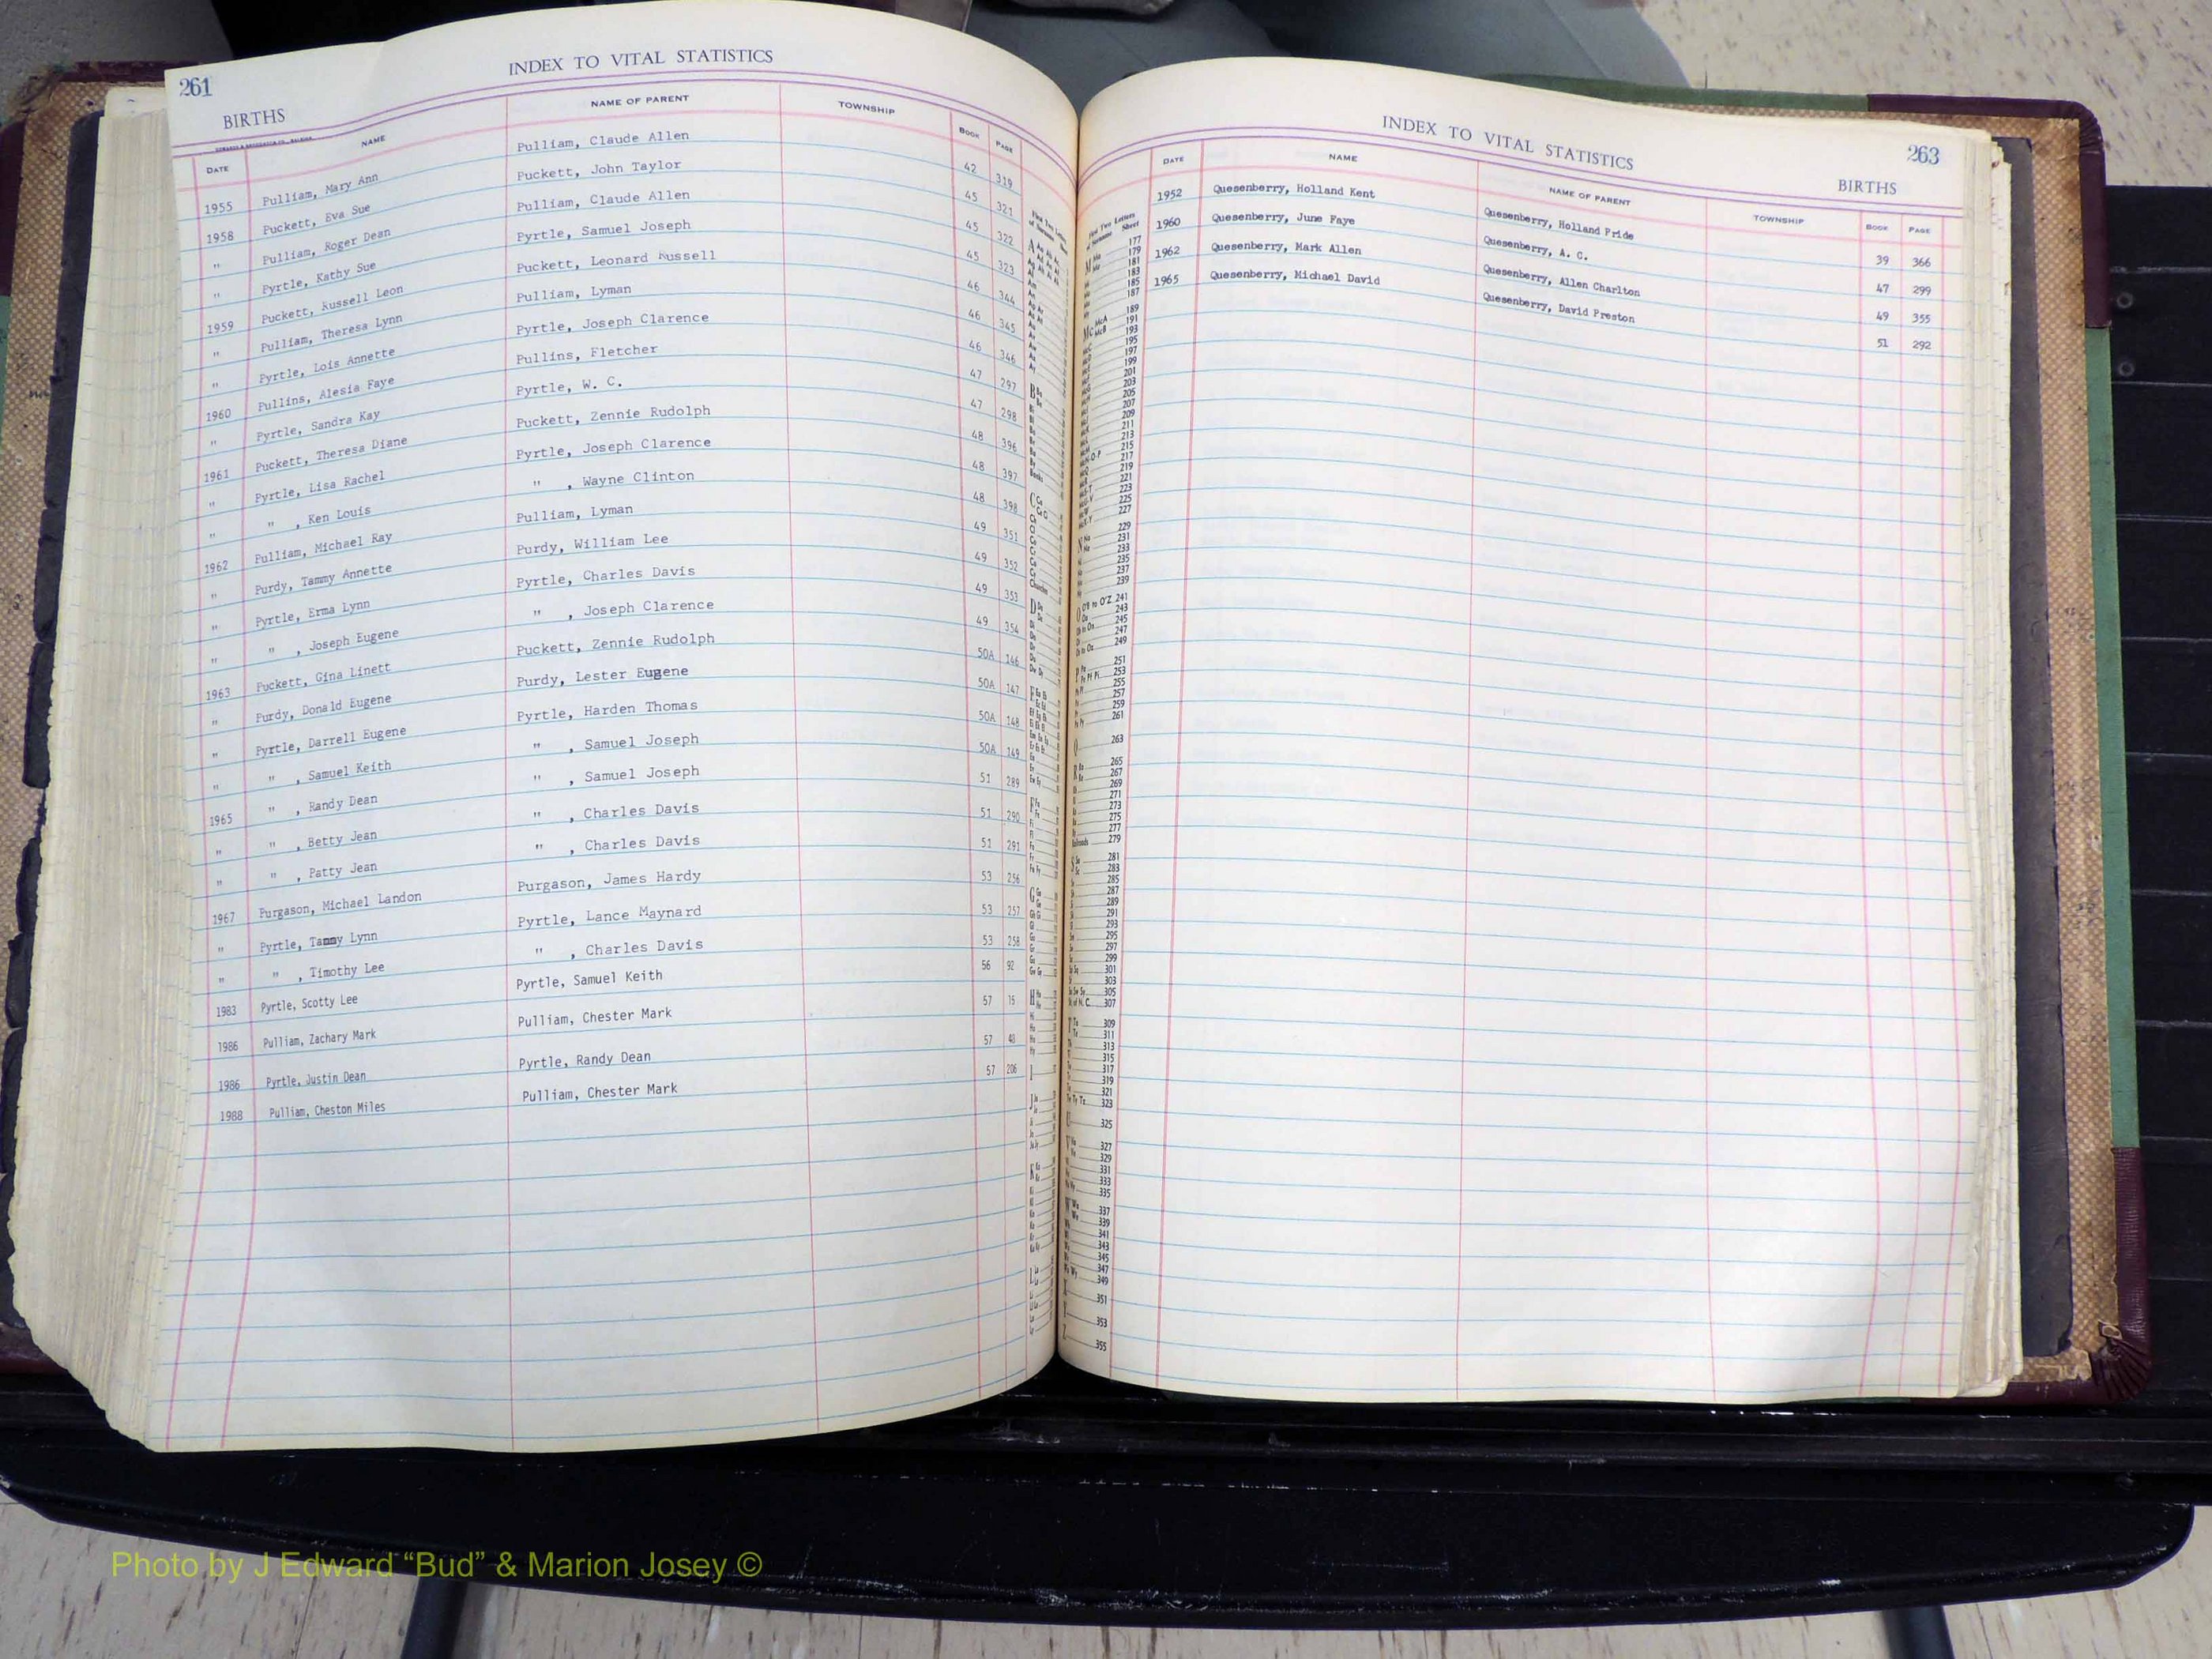 261
INDEX TO VITAL STATISTICS
BIRTHS
DATE NAME NAME OF PARENT TOWNSHIP BOOK PAGE
1955 Pulliam, Mary Ann Pulliam, Claude Allen 42 319
1958 Puckett, Eva Sue Puckett, John Taylor 45 321
" Pulliam, Roger Dean Pulliam, Claude Allen 45 322
" Pyrtle, Kathy Sue Pyrtle, Samuel Joseph 45 323
1959 Puckett, Russell Leon Puckett, Leonard Russell 46 344
" Pulliam, Theresa Lynn Pulliam, Lyman 46 345
" Pyrtle, Lois Annette Pyrtle, Joseph Clarence 46 346
1960 Pullins, Alesia Faye Pullins, Fletcher 47 297
" Pyrtle, Sandra Kay Pyrtle, W. C. 47 298
1961 Puckett, Theresa Diane Puckett, Zennie Rudolph 48 396
" Pyrtle, Lisa Rachel Pyrtle, Joseph Clarence 48 397
" " , Ken Louis " , Wayne Clinton 48 398
1962 Pulliam, Michael Ray Pulliam, Lyman 49 351
" Purdy, Tammy Annette Purdy, William Lee 49 352
" Pyrtle, Erma Lynn Pyrtle, Charles Davis 49 353
" " , Joseph Eugene " , Joseph Clarence 49 354
1963 Puckett, Gina Linett Puckett, Zennie Rudolph 50A 146
" Purdy, Donald Eugene Purdy, Lester Eugene 50A 147
" Pyrtle, Darrell Eugene Pyrtle, Harden Thomas 50A 148
" " , Samuel Keith " , Samuel Joseph 50A 149
1965 " , Randy Dean " , Samuel Joseph 51 289
" " , Betty Jean " , Charles Davis 51 290
" " , Patty Jean " , Charles Davis 51 291
1967 Purgason, Michael Landon Purgason, James Hardy 53 256
" Pyrtle, Tammy Lynn Pyrtle, Lance Maynard 53 257
" " , Timothy Lee " , Charles Davis 53 258
1983 Pyrtle, Scotty Lee Pyrtle, Samuel Keith 56 92
1986 Pulliam, Zachary Mark Pulliam, Chester Mark 57 15
1986 Pyrtle, Justin Dean Pyrtle, Randy Dean 57 40
1988 Pulliam, Cheston Miles Pulliam, Chester Mark 57 206
INDEX TO VITAL STATISTICS
263
BIRTHS
DATE NAME NAME OF PARENT TOWNSHIP BOOK PAGE
1952 Quesenberry, Holland Kent Quesenberry, Holland Pride 39 366
1960 Quesenberry, June Faye Quesenberry, A. C. 47 299
1962 Quesenberry, Mark Allen Quesenberry, Allen Charlton 49 355
1965 Quesenberry, Michael David Quesenberry, David Preston 51 292
Photo by J Edward “Bud” & Marion Josey ©